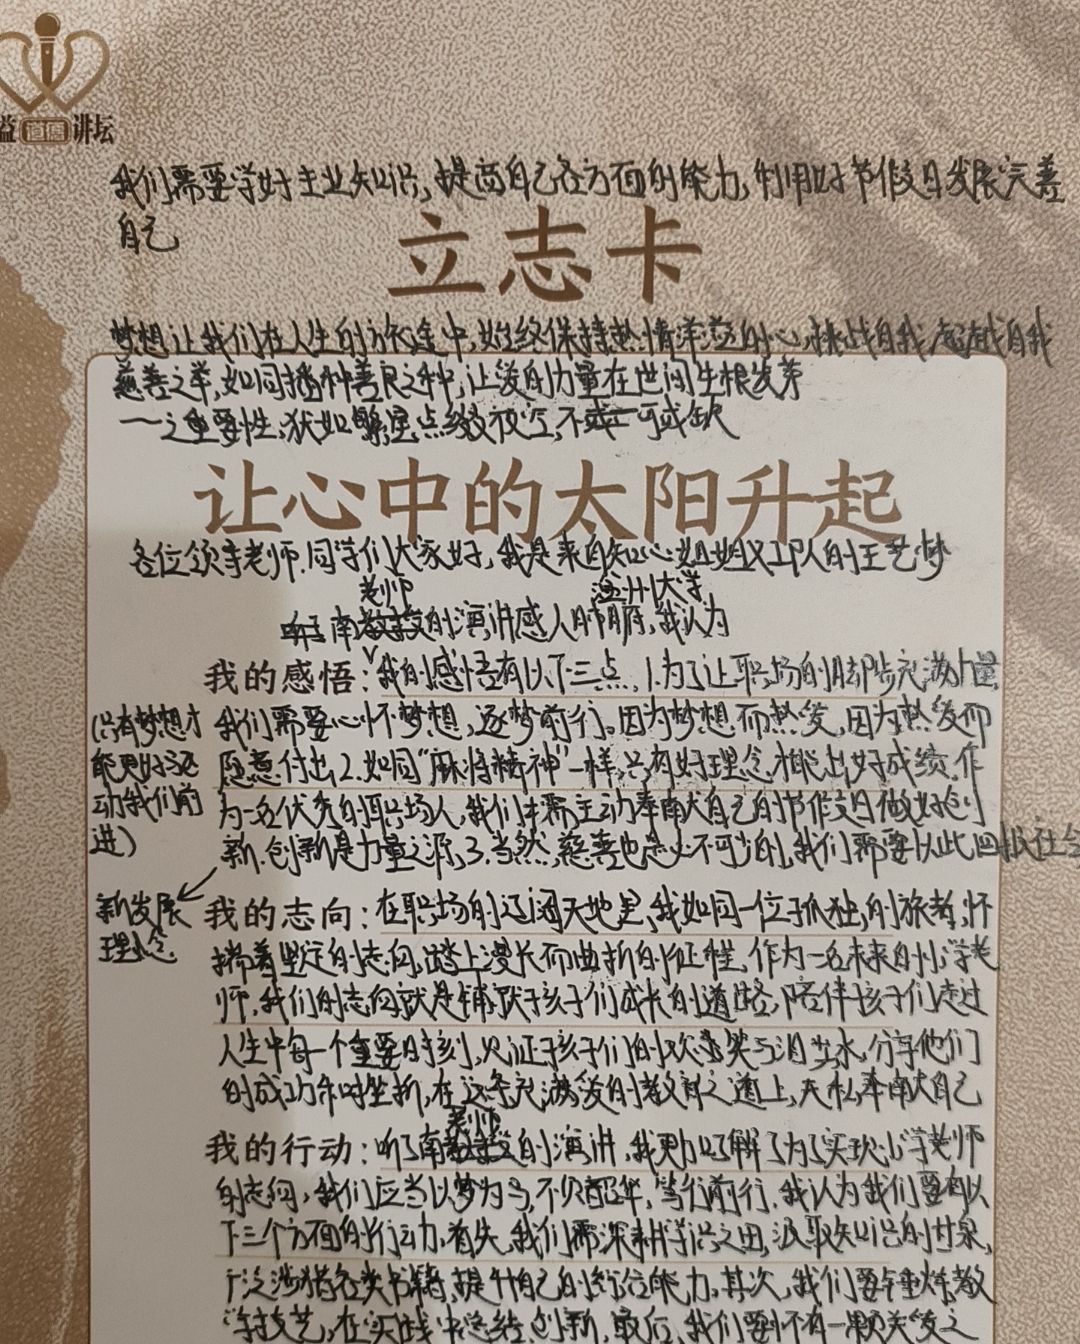 益 道德 讲坛
我们需要学好专业知识,提高自己各方面的能力,利用好节假日发展完善
自己
立志卡
梦想让我们在人生的旅途中,始终保持热情洋溢的心,挑战自我,超越自我
慈善之举,如同播种善良之种,让爱的力量在世间生根发芽
一之重要性,犹如繁星点缀夜空,不可或缺
让心中的太阳升起
各位领导老师.同学们大家好,我是来自知心姐姐义工队的王艺梦
老师 温州大学
听了南教授的演讲感人肺腑,我认为
我的感悟:我的感悟有以下三点,1.为了让职场的脚步充满力量
(只有梦想才
我们需要心怀梦想,逐梦前行。因为梦想而热爱,因为热爱而
能更好
愿意付出2.如同“麻将精神”一样,只有好理念才能出好成绩.作
动我们前
为一名优秀的职场人,我们需主动奉献自己的节假日做好创
进)
新.创新是力量之源,3.当然,慈善也是必不可少的,我们需要以此回报社会
新发展
理念
我的志向:在职场的辽阔天地里,我如同一位孤独的旅者,怀
揣着坚定的志向,踏上漫长而曲折的征程,作为一名未来的小学老
师,我们的志向就是铺就孩子们成长的道路,陪伴孩子们走过
人生中每一个重要时刻,见证孩子们的欢声笑与泪水,分享他们
的成功和挫折,在这条充满爱的教育之道上,无私奉献自己
老师
我的行动:听了南教授的演讲,我更加了解了为了实现小学老师
的志向,我们应当以梦为马,不负韶华,笃行前行.我认为我们要有以
下三个方面的行动,首先,我们需深耕学识之田,汲取知识的甘泉,
广泛涉猎各类书籍,提升自己的综合能力,其次,我们要锤炼教
学技艺,在实践中总结创新,最后,我们要怀有一颗关爱之